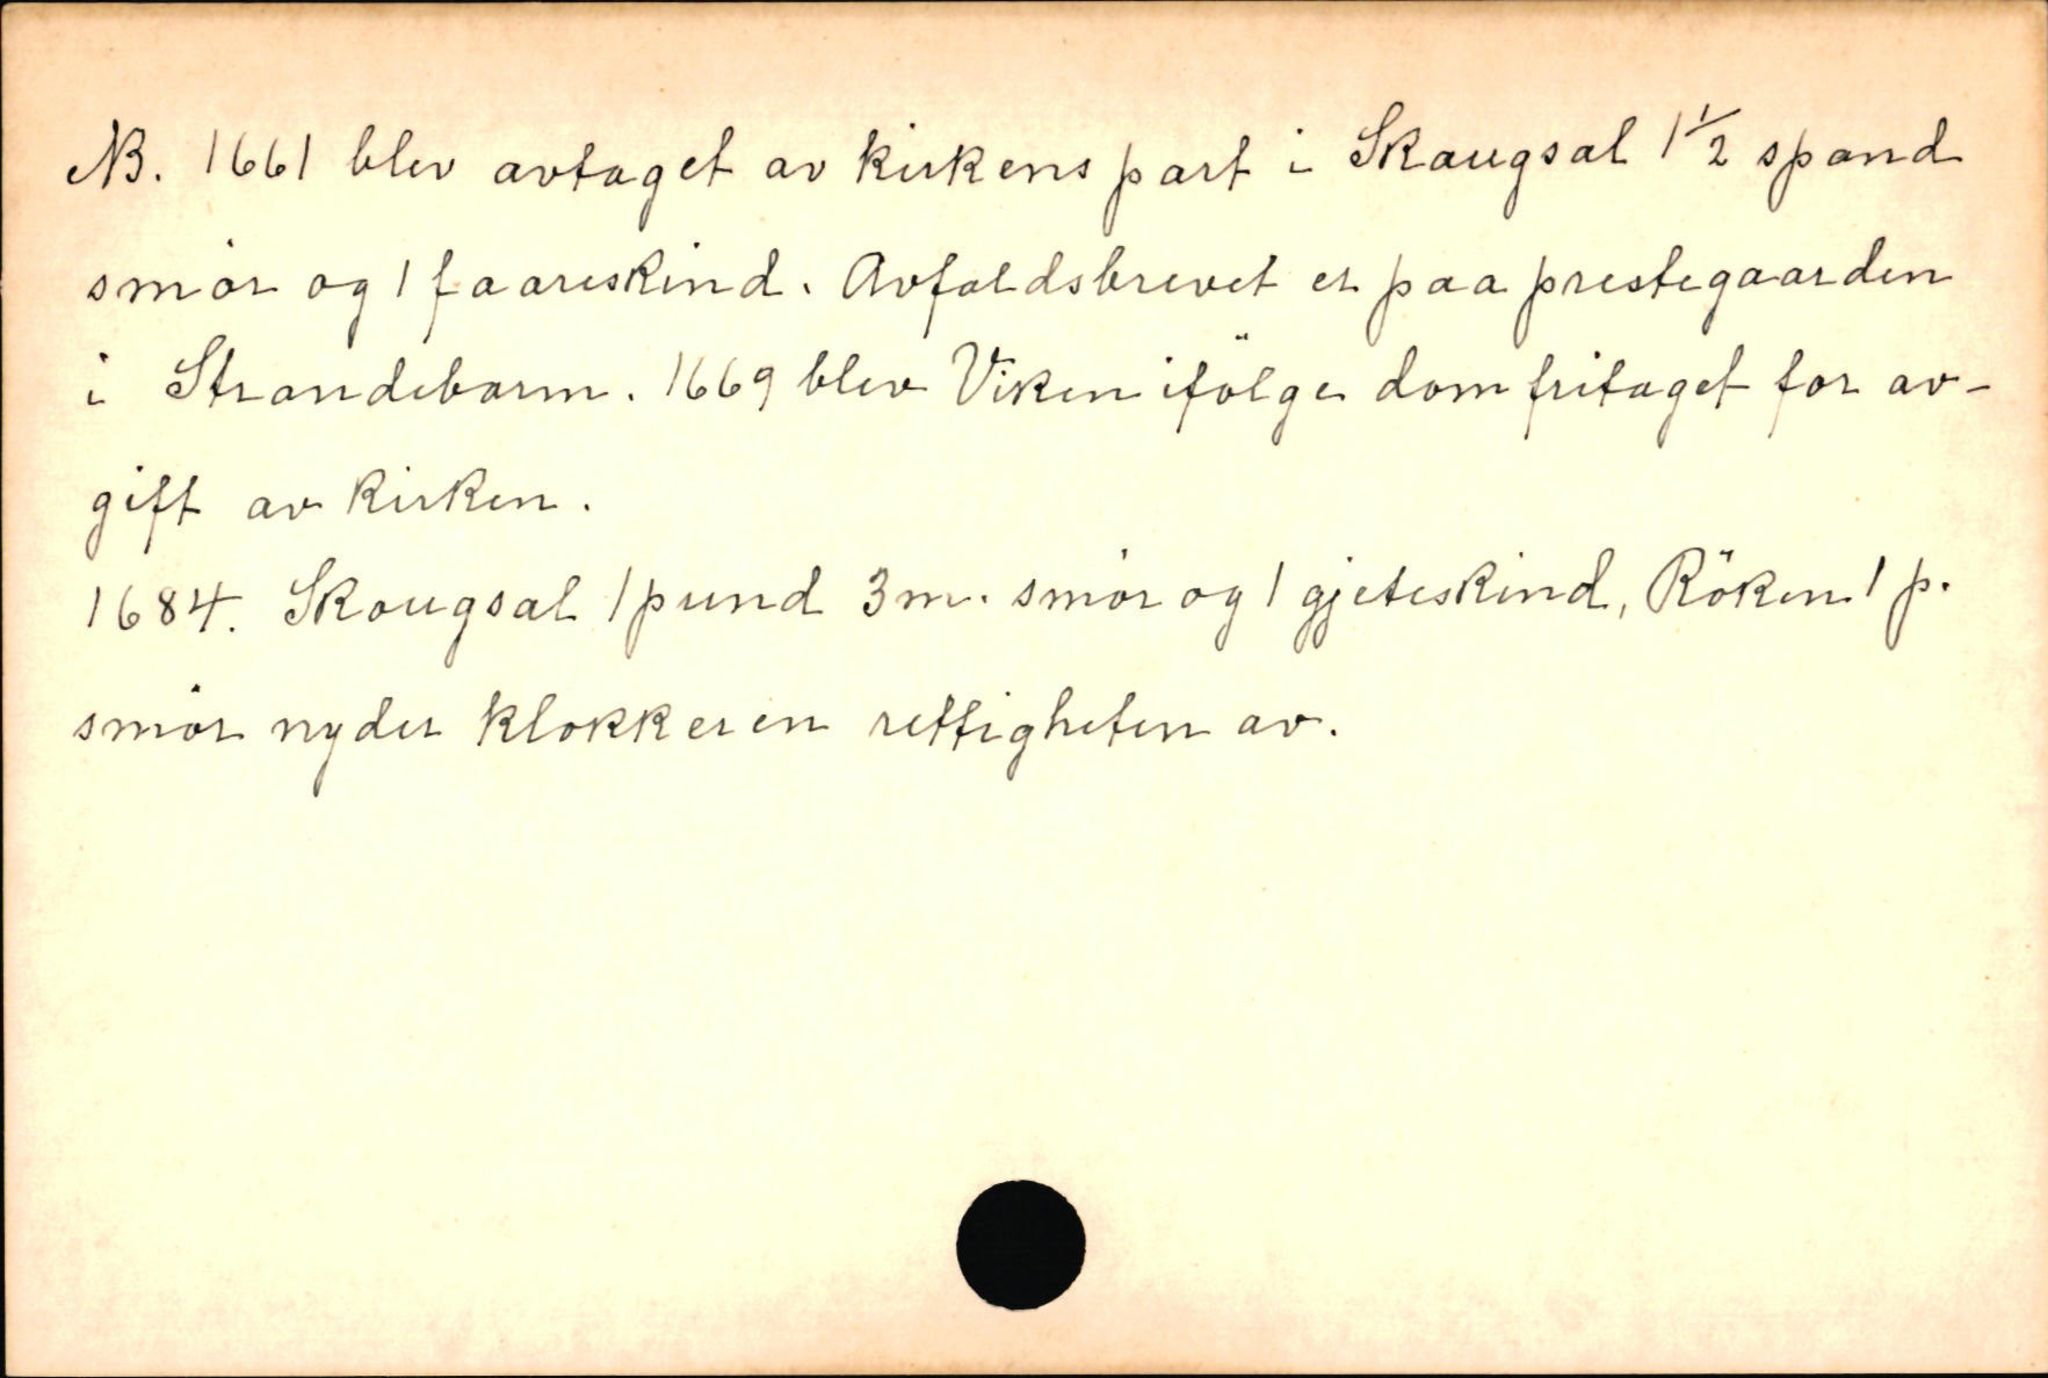 NB. 1661 blev avtaget av kirkens part i Skaugsal 1 1/2 spand
smör og 1 faareskind. Avfaldsbrevet er paa prestegaarden
i Strandebarm. 1669 blev Viken ifölge dom fritaget for av-
gift av kirken.
1684. Skougsal 1 pund 3 m. smör og 1 gjeteskind, Röken 1 p.
smör nyder klokkeren rettigheten av.